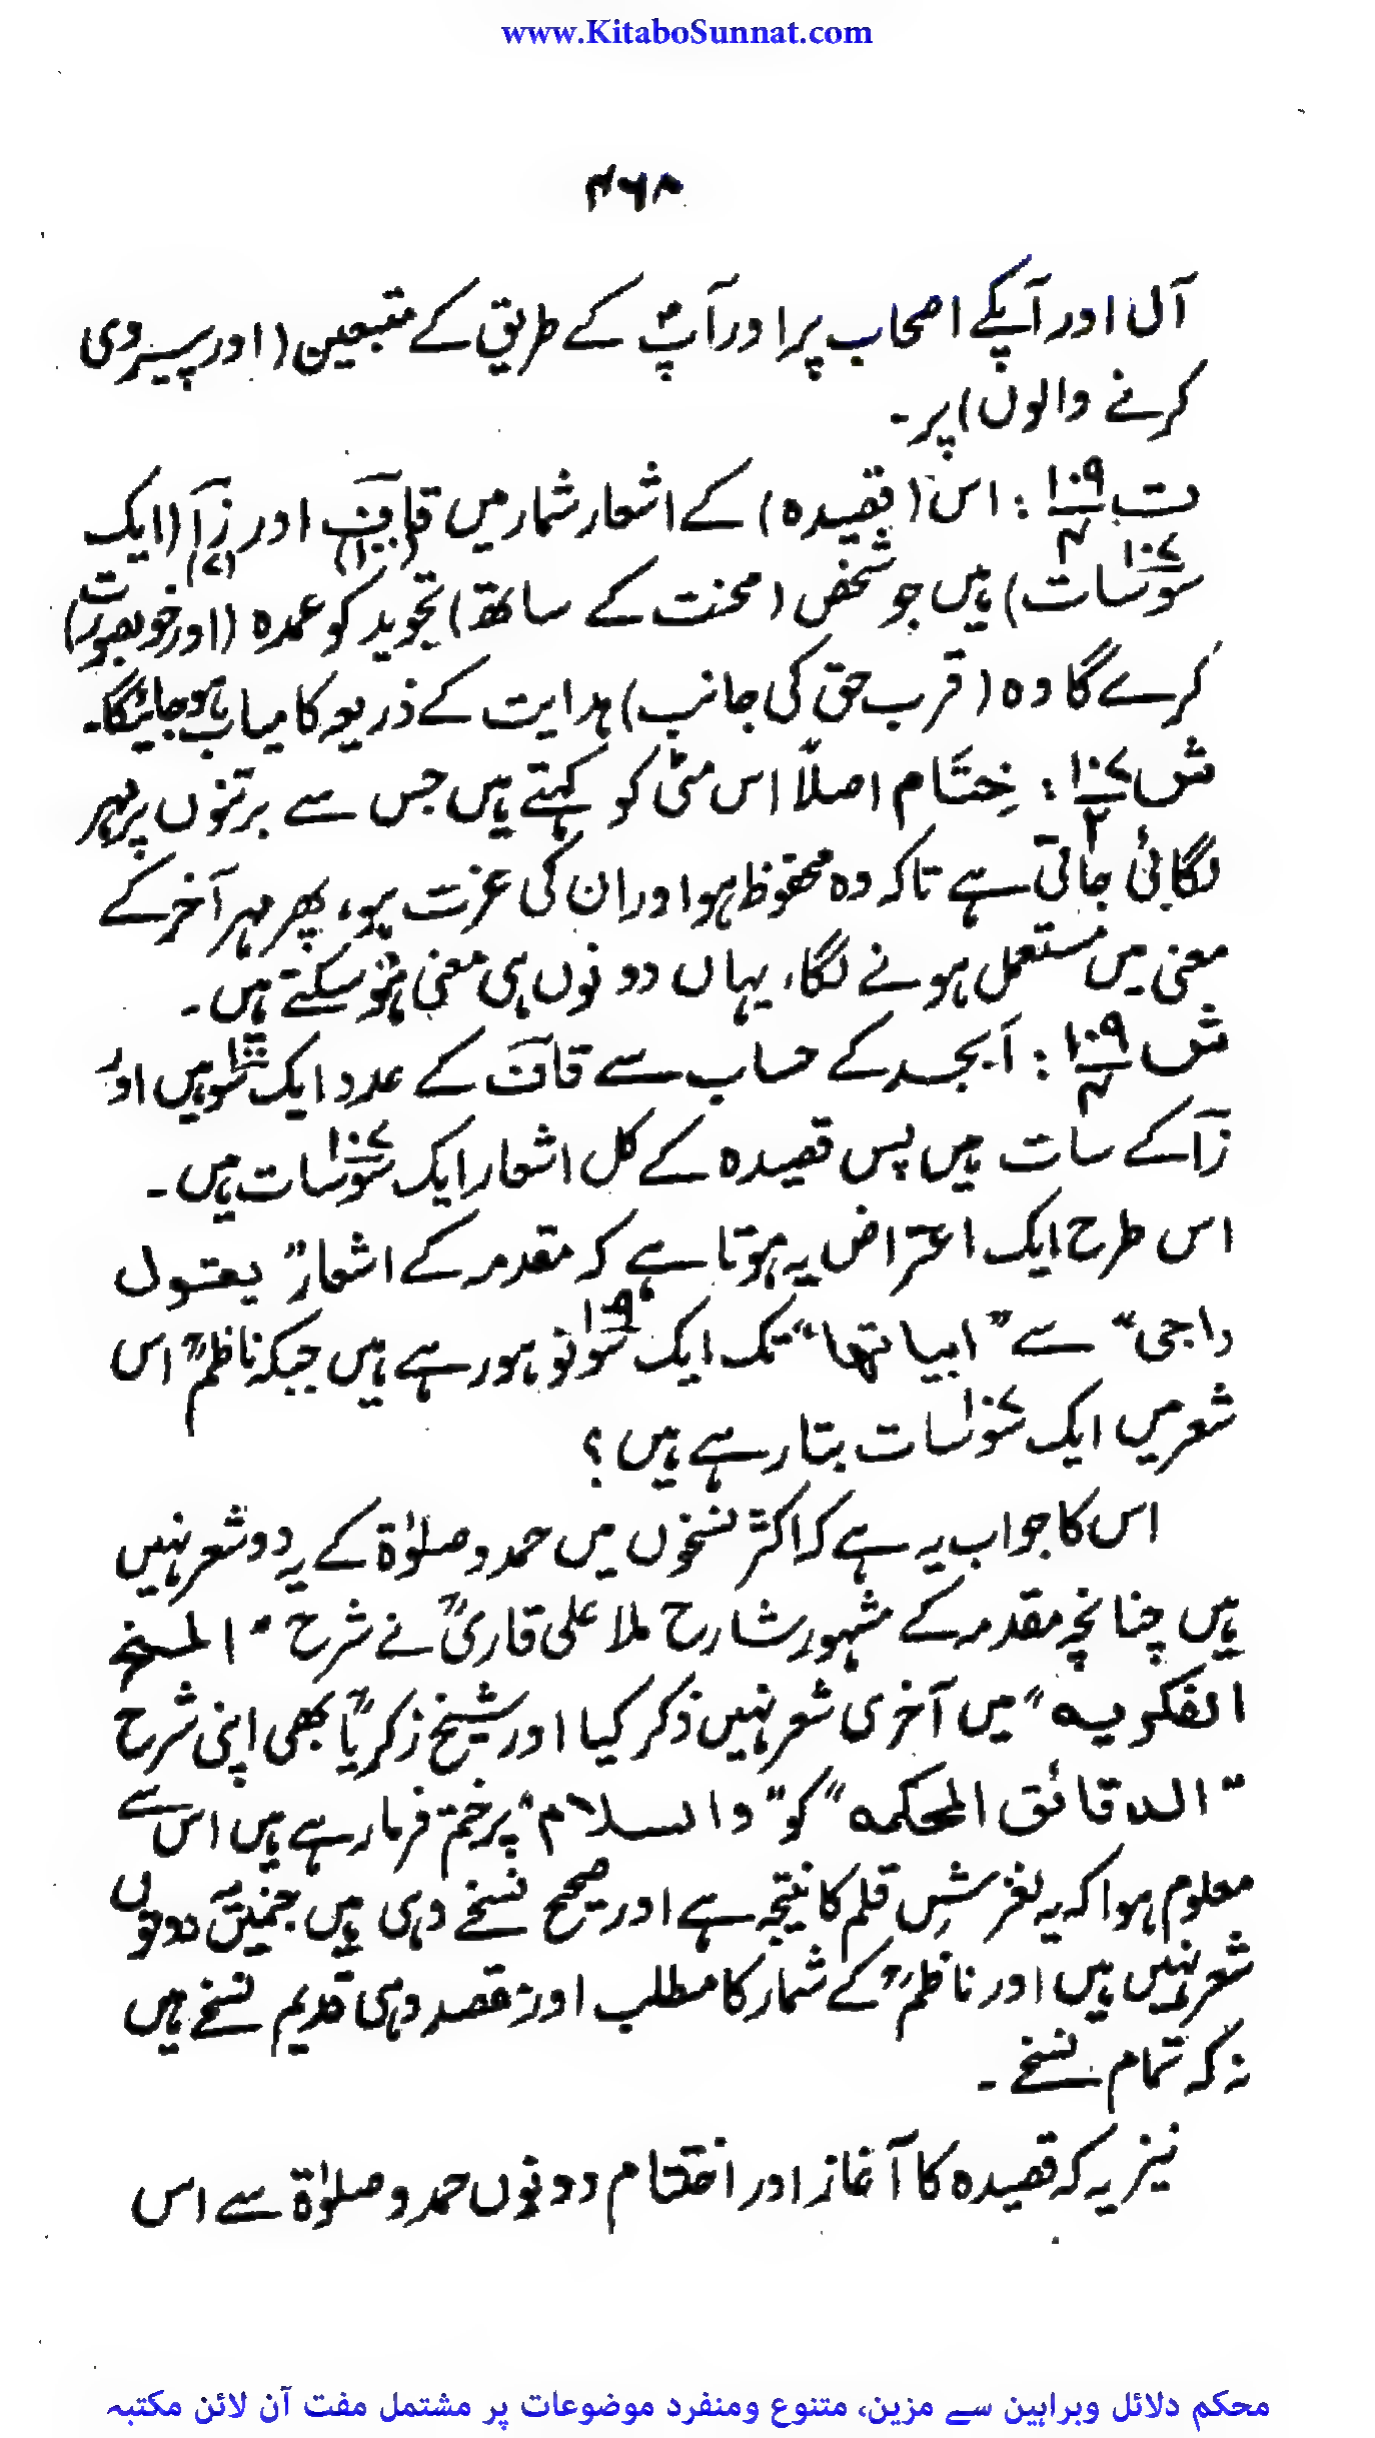 www.KitaboSunnat.com
۴۶۸
آل اور آپکے اصحاب پر اور آپؐ کے طریق کے متبعین (اور پیروی
کرنے والوں) پر۔
ت ۱۰۹/۴ : اس (قصیدہ) کے اشعار شمار میں قاف (۱۰۰) اور زآ (۷) (ایک
سو سات ۱۰۷) ہیں جو شخص (محنت کے ساتھ) تجوید کو عمدہ (اور خوبصورت)
کرے گا وہ (قرب حق کی جانب) ہدایت کے ذریعہ کامیاب ہو جائیگا۔
ش ۱۰۷/۲ : خِتَام اصلاً اس مٹی کو کہتے ہیں جس سے برتنوں پر مہر
لگائی جاتی ہے تاکہ وہ محفوظ ہو اور ان کی عزت ہو، پھر مہر آخر کے
معنی میں مستعمل ہونے لگا، یہاں دونوں ہی معنی ہو سکتے ہیں۔
ش ۱۰۹/۴ : اَبجد کے حساب سے قاف کے عدد ایک سو ۱۰۰ ہیں اور
زآ کے سات ہیں پس قصیدہ کے کل اشعار ایک سو سات ۱۰۷ ہیں۔
اس طرح ایک اعتراض یہ ہوتا ہے کہ مقدمہ کے اشعار ”یقول
راجی“ سے ”ابیاتھا“ تک ایک سو نو ۱۰۹ ہو رہے ہیں جبکہ ناظمؒ اس
شعر میں ایک سو سات ۱۰۷ بتا رہے ہیں؟
اس کا جواب یہ ہے کہ اکثر نسخوں میں حمد و صلوٰۃ کے یہ دو شعر نہیں
ہیں چنانچہ مقدمہ کے مشہور شارح ملا علی قاریؒ نے شرح ”المنح
الفکریہ“ میں آخری شعر نہیں ذکر کیا اور شیخ زکریاؒ بھی اپنی شرح
”الدقائق المحکمہ“ کو ”والسلام“ پر ختم فرما رہے ہیں اس سے
معلوم ہوا کہ یہ لغزشِ قلم کا نتیجہ ہے اور صحیح نسخے وہی ہیں جنمیں یہ دونوں
شعر نہیں ہیں اور ناظمؒ کے شمار کا مطلب اور مقصد وہی قدیم نسخے ہیں
نہ کہ تمام نسخے۔
نیز یہ کہ قصیدہ کا آغاز اور اختتام دونوں حمد و صلوٰۃ سے اس
محکم دلائل وبراہین سے مزین، متنوع ومنفرد موضوعات پر مشتمل مفت آن لائن مکتبہ